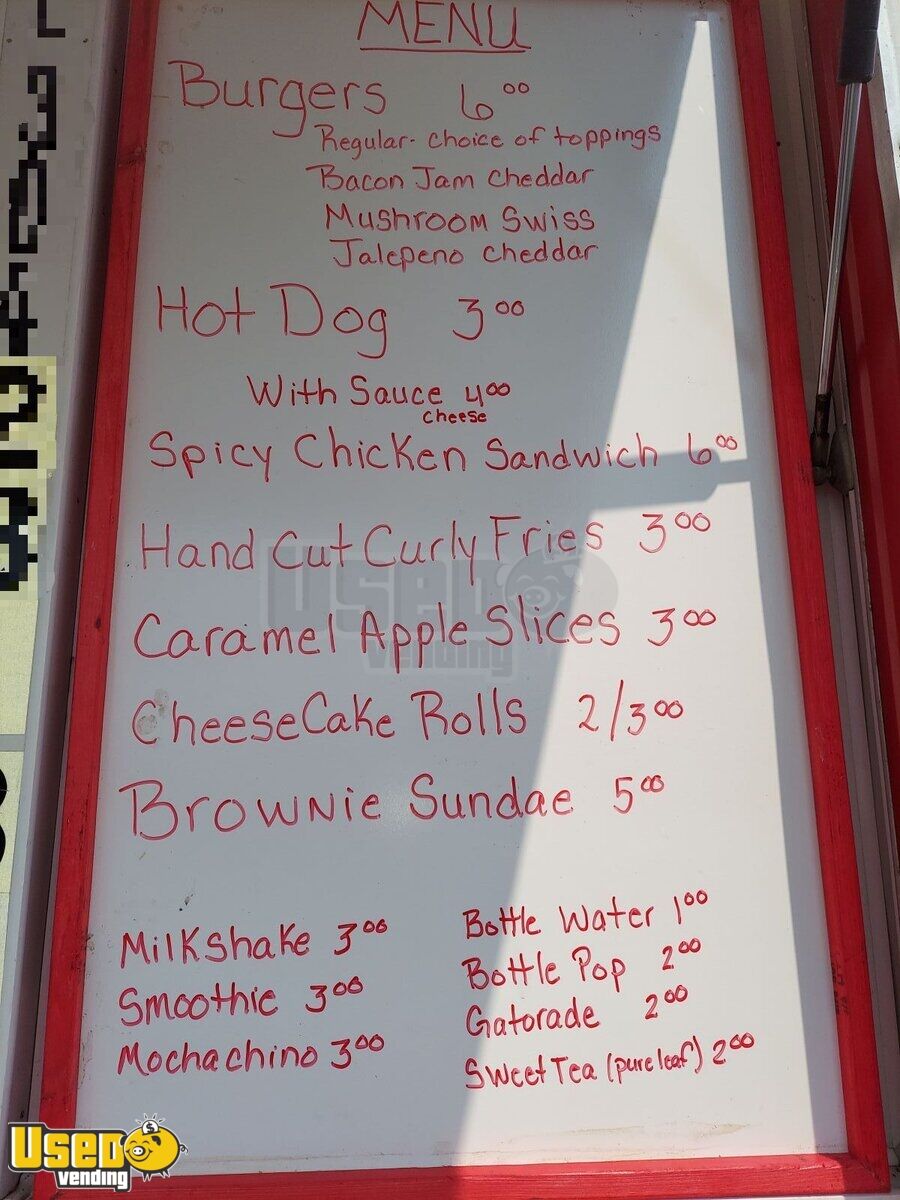 MENU
Burgers 6.00
Regular- choice of toppings
Bacon Jam Cheddar
Mushroom Swiss
Jalepeno Cheddar
Hot Dog 3.00
With Sauce 4.00
cheese
Spicy Chicken Sandwich 6.00
Hand Cut Curly Fries 3.00
Caramel Apple Slices 3.00
CheeseCake Rolls 2/3.00
Brownie Sundae 5.00
Milkshake 3.00
Smoothie 3.00
Mochachino 3.00
Bottle Water 1.00
Bottle Pop 2.00
Gatorade 2.00
Sweet Tea (pure leaf) 2.00
USED vending
USED vending